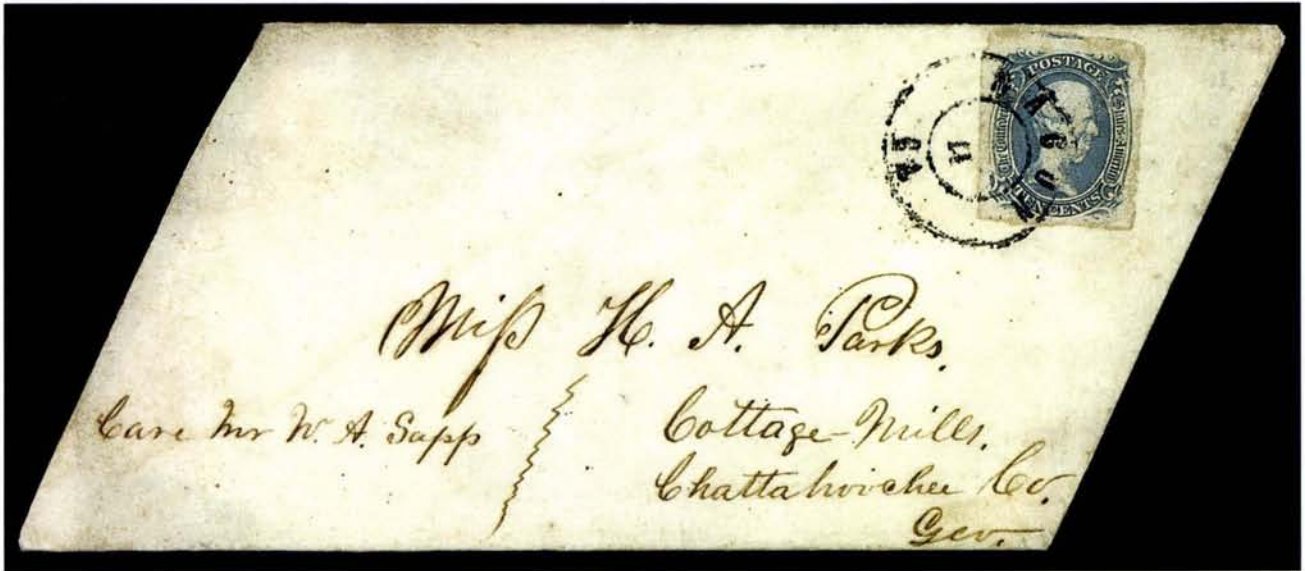 POSTAGE
TEN CENTS
11
Miſs H. A. Parks.
Care Mr W. A. Sapp
Cottage-Mills.
Chattahoochee Co.
Geo.